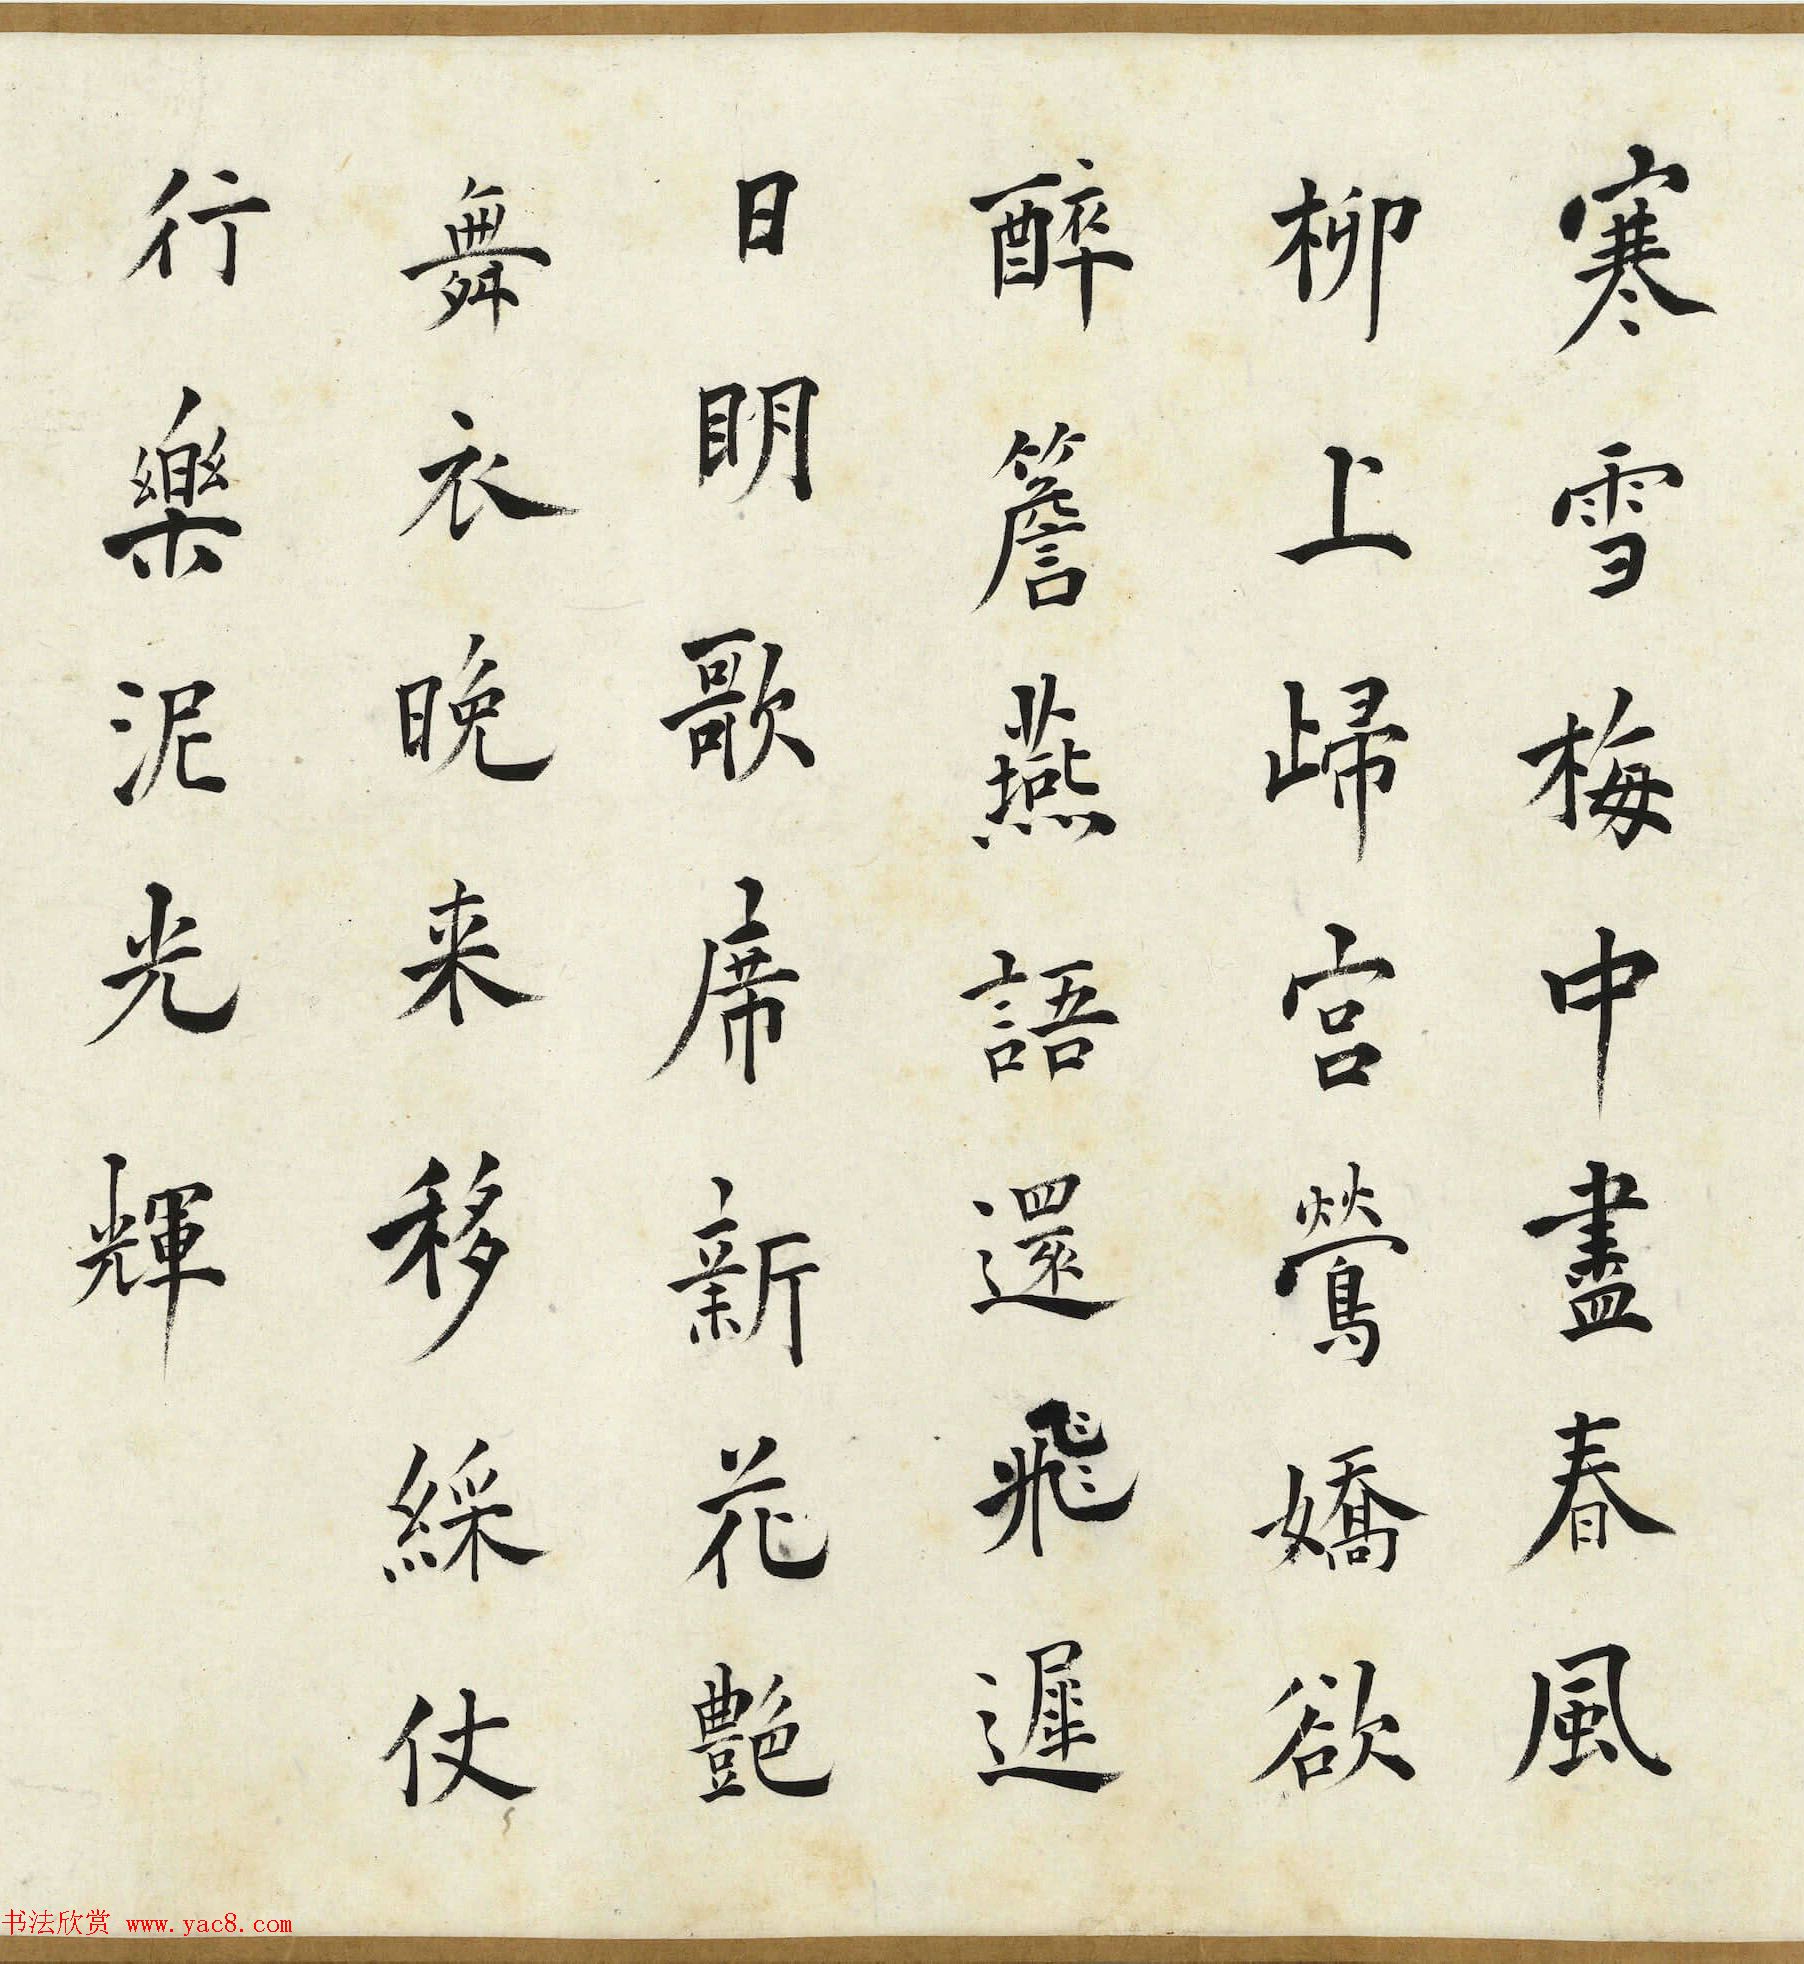 寒雪梅中盡春風
柳上歸宮鶯嬌欲
醉簷燕語還飛遲
日明歌席新花艶
舞衣晚来移綵仗
行樂泥光輝
书法欣赏 www.yac8.com